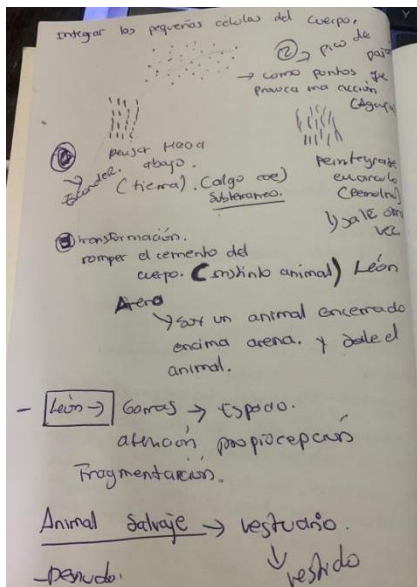 Integrar las pequeñas células del cuerpo.
② → pico de
→ como puntos que
provoca una acción
pensar Hacia
abajo.
→ Esconder.
(tierra). (algo cae)
Subterraneo.
reintegrarse
→ sale otra
vez
③ transformación.
romper el cemento del
cuerpo. (instinto animal) León
→ soy un animal encerrado
encima arena. y sale el
animal.
- León → Garras → Espacio.
atención propiocepción
Fragmentación.
Animal Salvaje → vestuario.
↓
vestido